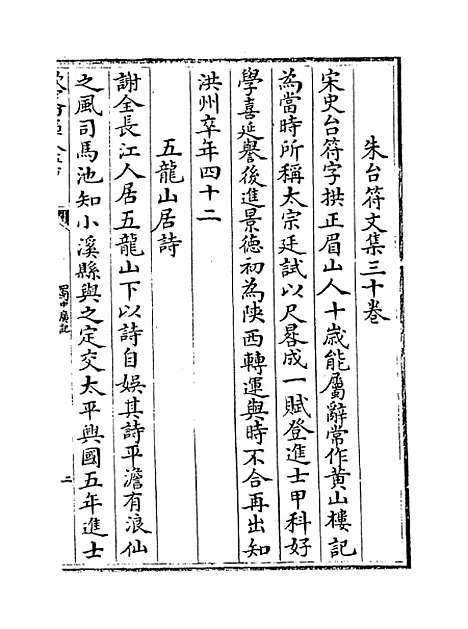 朱台符文集三十卷
宋史台符字拱正眉山人十歳能屬辭常作黄山樓記
為當時所稱太宗廷試以尺晷成一賦登進士甲科好
學喜延譽後進景徳初為陜西轉運與時不合再出知
洪州卒年四十二
五龍山居詩
謝全長江人居五龍山下以詩自娱其詩平澹有浪仙
之風司馬池知小溪縣與之定交太平興國五年進士
蜀中廣記
二